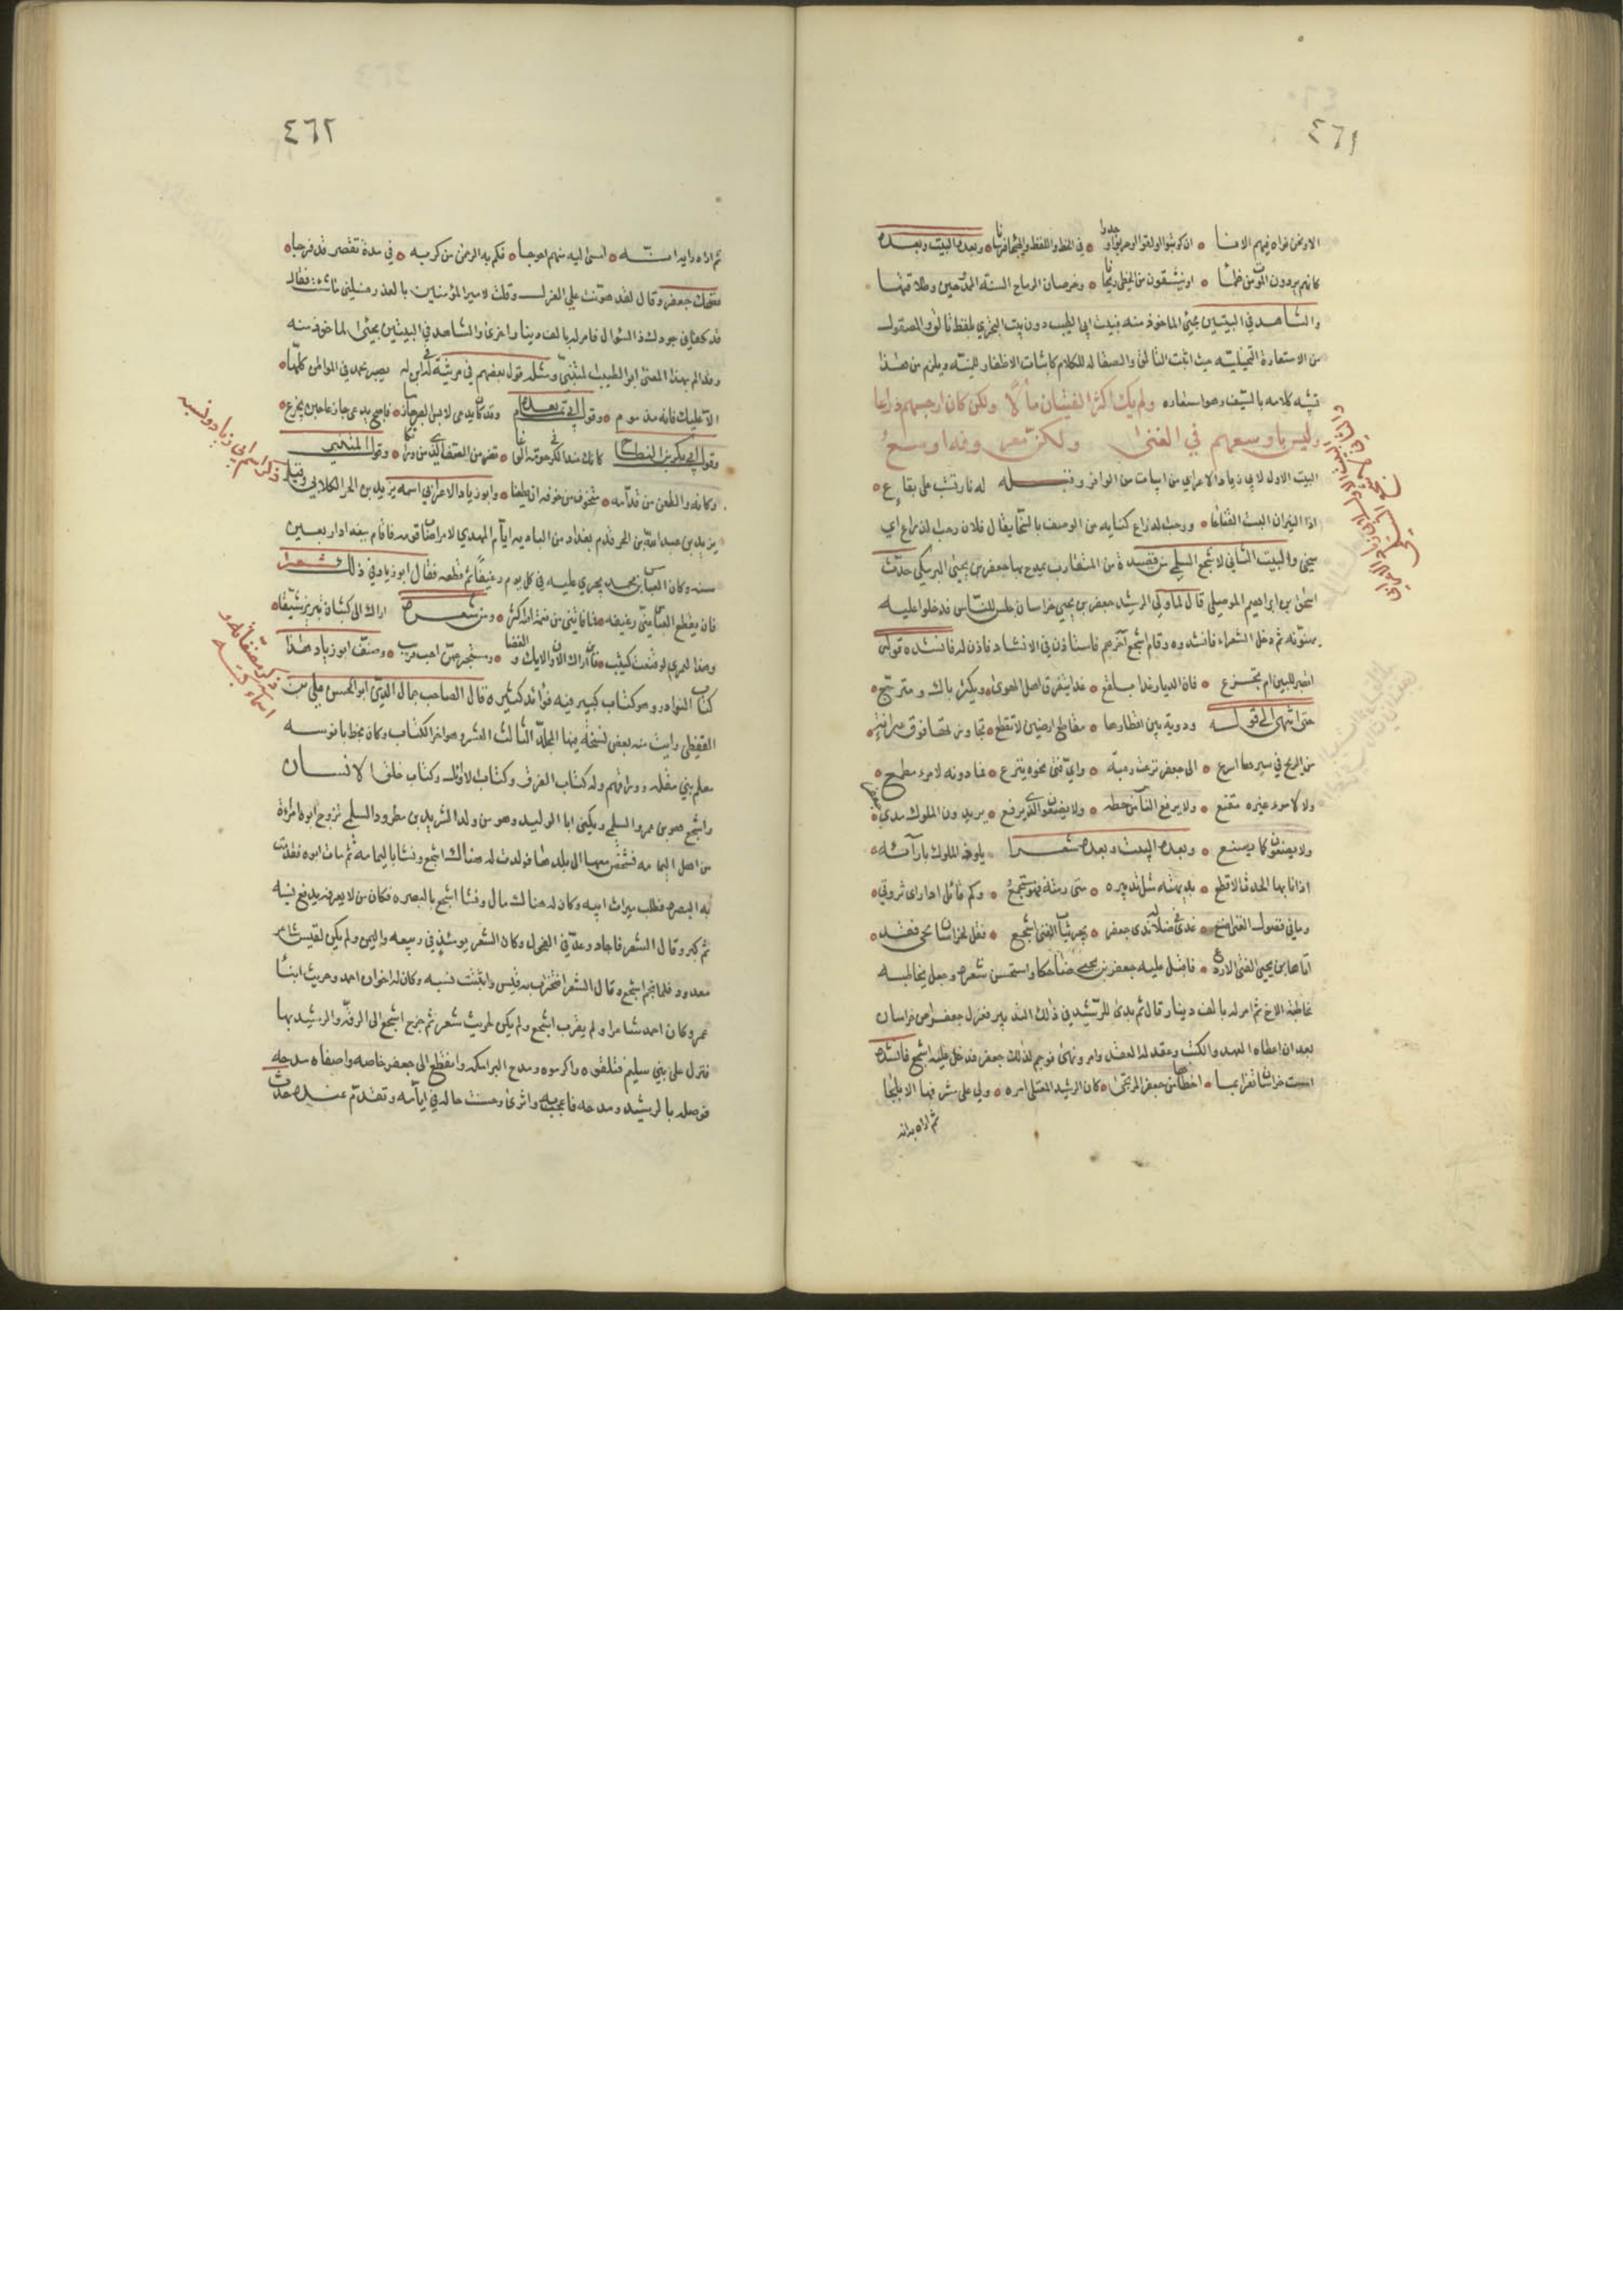 ٤٦١
كانهم يردون الموت من ظمأ • او ينشقون من الخطي ريحانا • وخرصان الرماح
والشاهد في البيتين مجيئ الماخوذ منه فبيت ابي الطيب دون بيت البحتري بلفظ تألق والمصقول
من الاستعارة التخييلية حيث اثبت التألق والصقالة للكلام كاثبات الاظفار للمنية ويلزم من هذا
تشبيه كلامه بالسيف وهو استعاره ولم يك اكثر الفتيان مالا ولكن كان ارحبهم ذراعا
وليس باوسعهم في الغنى ولكن معروفه اوسع
البيت الاول لابي زياد الاعرابي من ابيات من الوافر وقبله له نار تشب على بقاع •
اذا النيران البست القناعا • ورحب الذراع كنايه عن الوصف بالسخا يقال فلان رحب الذراع اي
سخي والبيت الثاني لاشجع السلمي من قصيدة من المتقارب يمدح بها جعفر بن يحيى البرمكي حدث
اسحق بن ابراهيم الموصلي قال لما ولي الرشيد جعفر بن يحيى خراسان جلس للناس فدخلوا عليه
يهنؤنه ثم دخل الشعراء فانشدوه وقام اشجع آخرهم فاستاذن في الانشاد فاذن له فانشده قوله
اتصبر للبين ام تجزع • فان الديار غدا بلقع • غدا يتفرق اهل الهوى • ويكثر باك ومسترجع •
حتى انتهى الى قوله ودوية بين اقطارها • مقاطع ارضين لا تقطع • تجاوزتها فوق عيرانة •
من الريح في سيرها اسرع • الى جعفر نزعت رغبة • واي فتى نحوه ينزع • فما دونه لامرء مطمع •
ولا لامرء غيره مقنع • ولا يرفع الناس من حطه • ولا يضعون الذي يرفع • يريد الملوك مدى جعفر
ولا يصنعون كما يصنع • وبعده البيت وبعده شعرا يلوذ الملوك بآرائه •
اذا نابها الحدث الافظع • بديهته مثل تدبيره • متى رمته فهو مستجمع • وكم قائل اذ راى ثروتي •
وما في فضول الغنى اصنع • غدا في ظلال ندى جعفر • يجر ثياب الغنى اشجع • فقل لخراسان تحيى فقد •
اتاها ابن يحيى الفتى الاروع • فاقبل عليه جعفر بن يحيى ضاحكا واستحسن شعره وجعل يخاطبه
مخاطبة الاخ ثم امر له بالف دينار قال ثم بدى للرشيد في ذلك التدبير فعزل جعفر عن خراسان
بعد ان اعطاه العهد والكتب وعقد له العقد وامر ونهى فوجم لذلك جعفر فدخل عليه اشجع فانشده
امست خراسان تعزى بما • اخطاها من جعفر المرتجى • كان الرشيد المعتلي امره • ولى على مشرقها الابلجا
ثم اراه رايه
٤٦٢
ثم اراه رايه انه • امسى اليه منهم احوجا • فكم به الرحمن من كربه • في مدة تقصر قد فرجا •
فضحك جعفر وقال لقد هونت علي العزل وقلت لامير المؤمنين بالعذر فسلني ما شئت فقال
قد كفاني جودك ذل السؤال فامر له بالف دينار اخرى والشاهد في البيتين مجيئ الماخوذ منه
وقد الم بهذا المعنى ابو الطيب المتنبي ومثله قول بعضهم في مرثية له في ابن له يصبر يحمد في المواطن كلها •
الا عليك فانه مذموم • وقول ابي تمام بعده وقد كان يدعى لابس الصبر حازما • فاصبح يدعى حازما حين يجزع •
وقول ابي بكر بن النطاح وقول المتنبي
وكانه والطعن من قدامه • متخوف من خلفه ان يطعنا • وابو زياد الاعرابي اسمه يزيد بن الحر الكلابي وقيل
يزيد بن عبد الله بن الحر قدم بغداد من الباديه ايام المهدي لامر اصاب قومه فاقام ببغداد اربعين
سنه وكان العباس بن محمد يجري عليه في كل يوم رغيفا ثم قطعه فقال ابو زياد في ذلك شعرا
فان يقطع العباس عني رغيفه • فما فاتني من نعمة الله اكثر • ومن شعره اراك الى كثبان يبرين شيقا •
وهذا لعمري لو قنعت كثيب • وصنف ابو زياد هذا
كتاب النوادر وهو كتاب كبير فيه فوائد كثيره قال الصاحب جمال الدين ابو الحسن علي بن
القفطي رايت منه بعض نسخه منها المجلد الثالث العشر وهو اخر الكتاب وكان بخط بانوسه
معلم بني مقله ووراقهم وله كتاب الفرق وكتاب الابل وكتاب خلق الانسان
واشجع هو بن عمرو السلمي ويكنى ابا الوليد وهو من ولد الشريد بن مطرود السلمي تزوج ابوه امراة
من اهل اليمامه فشخص معها الى بلدها فولدت له هناك اشجع ونشا باليمامه ثم مات ابوه فقدمت
به البصره فطلب ميراث ابيه وكان له هنالك مال ونشا اشجع بالبصره فكان من لا يعرفه يدفع نسبه
ثم كبر وقال الشعر فاجاد وعد في الفحول وكان الشعر يومئذ في ربيعه واليمن ولم يكن لقيس شاعر
معدود فلما نجم اشجع وقال الشعر افتخرت به قيس واثبتت نسبه وكان له اخوان احمد وحريث ابنا
عمرو وكان احمد شاعرا ولم يقرب اشجع ولم يكن لحريث شعر ثم خرج اشجع الى الرقة والرشيد بها
فنزل على بني سليم فتلقوه واكرموه ومدح البرامكه وانقطع الى جعفر خاصه واصفاه مدحه
فوصله بالرشيد ومدحه فاعجب به واثرى وحسنت حاله في ايامه وتقدم عنده حدث
ذكر اسم ابي زياد ونسبه
ذكر مصنفاته و
اسماء كتبه